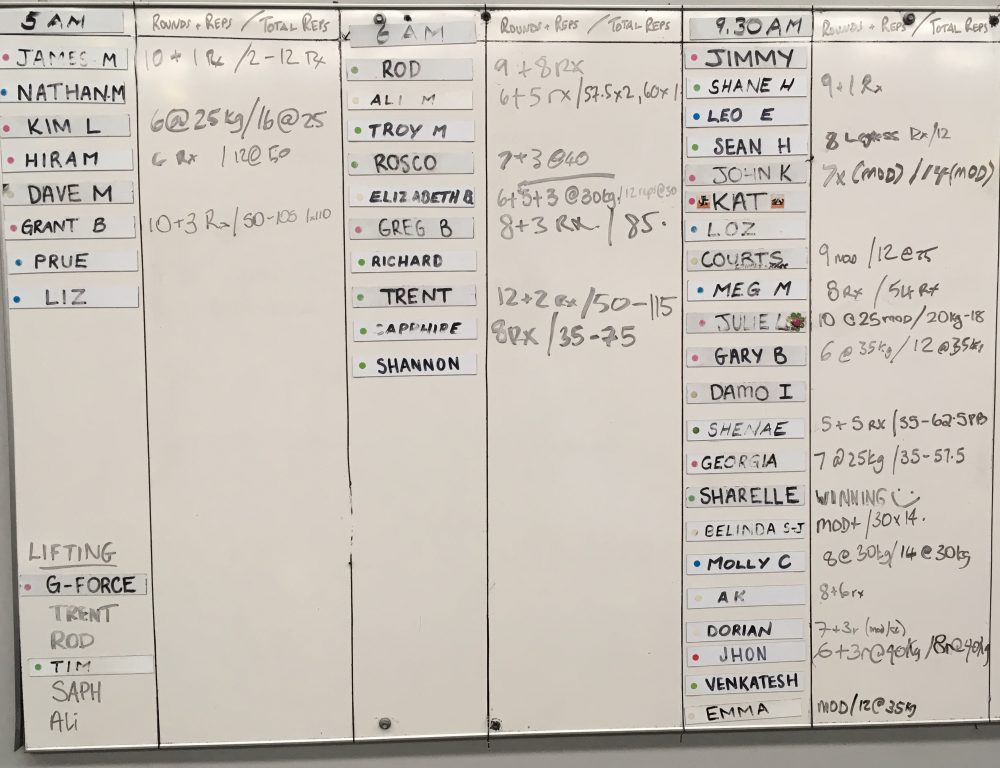 5 AM ROUNDS + REPS / TOTAL REPS
JAMES M 10 + 1 Rx / 2-12 Rx
NATHAN.M
KIM L 6@25kg/16@25
HIRAM 6 Rx / 12@50
DAVE M
GRANT B 10+3 Rx/50-105 1x110
PRUE
LIZ
LIFTING
G-FORCE
TRENT
ROD
TIM
SAPH
Ali
AM ROUNDS + REPS / TOTAL REPS
ROD 9 + 8 RX
ALI M 6+5 rx/57.5x2, 60x1
TROY M
ROSCO 7+3 @40
ELIZABETH B 6+5+3 @30kg/12 reps@30
GREG B 8+3 RX. / 85.
RICHARD
TRENT 12+2 Rx / 50-115
SAPPHIRE 8RX / 35-75
SHANNON
9.30 AM ROUNDS + REPS / TOTAL REPS
JIMMY
SHANE H 9+1 Rx
LEO E
SEAN H 8 Rx/12
JOHN K 7x (MOD) / (MOD)
KAT
LOZ
COURTS 9 MOD / 12@25
MEG M 8Rx / 54 Rx
JULIE L 10 @25mod/20kg-18
GARY B 6 @35kg / 12@35kg
DAMO I
SHENAE 5+5 RX /35-62.5PB
GEORGIA 7 @25kg /35-57.5
SHARELLE WINNING
BELINDA S-J MOD+ /30x14.
MOLLY C 8@30kg/14@30kg
AK 8+6rx
DORIAN 7+3r
JHON 6+3r@40kg /8r@40kg
VENKATESH
EMMA MOD/12@35kg